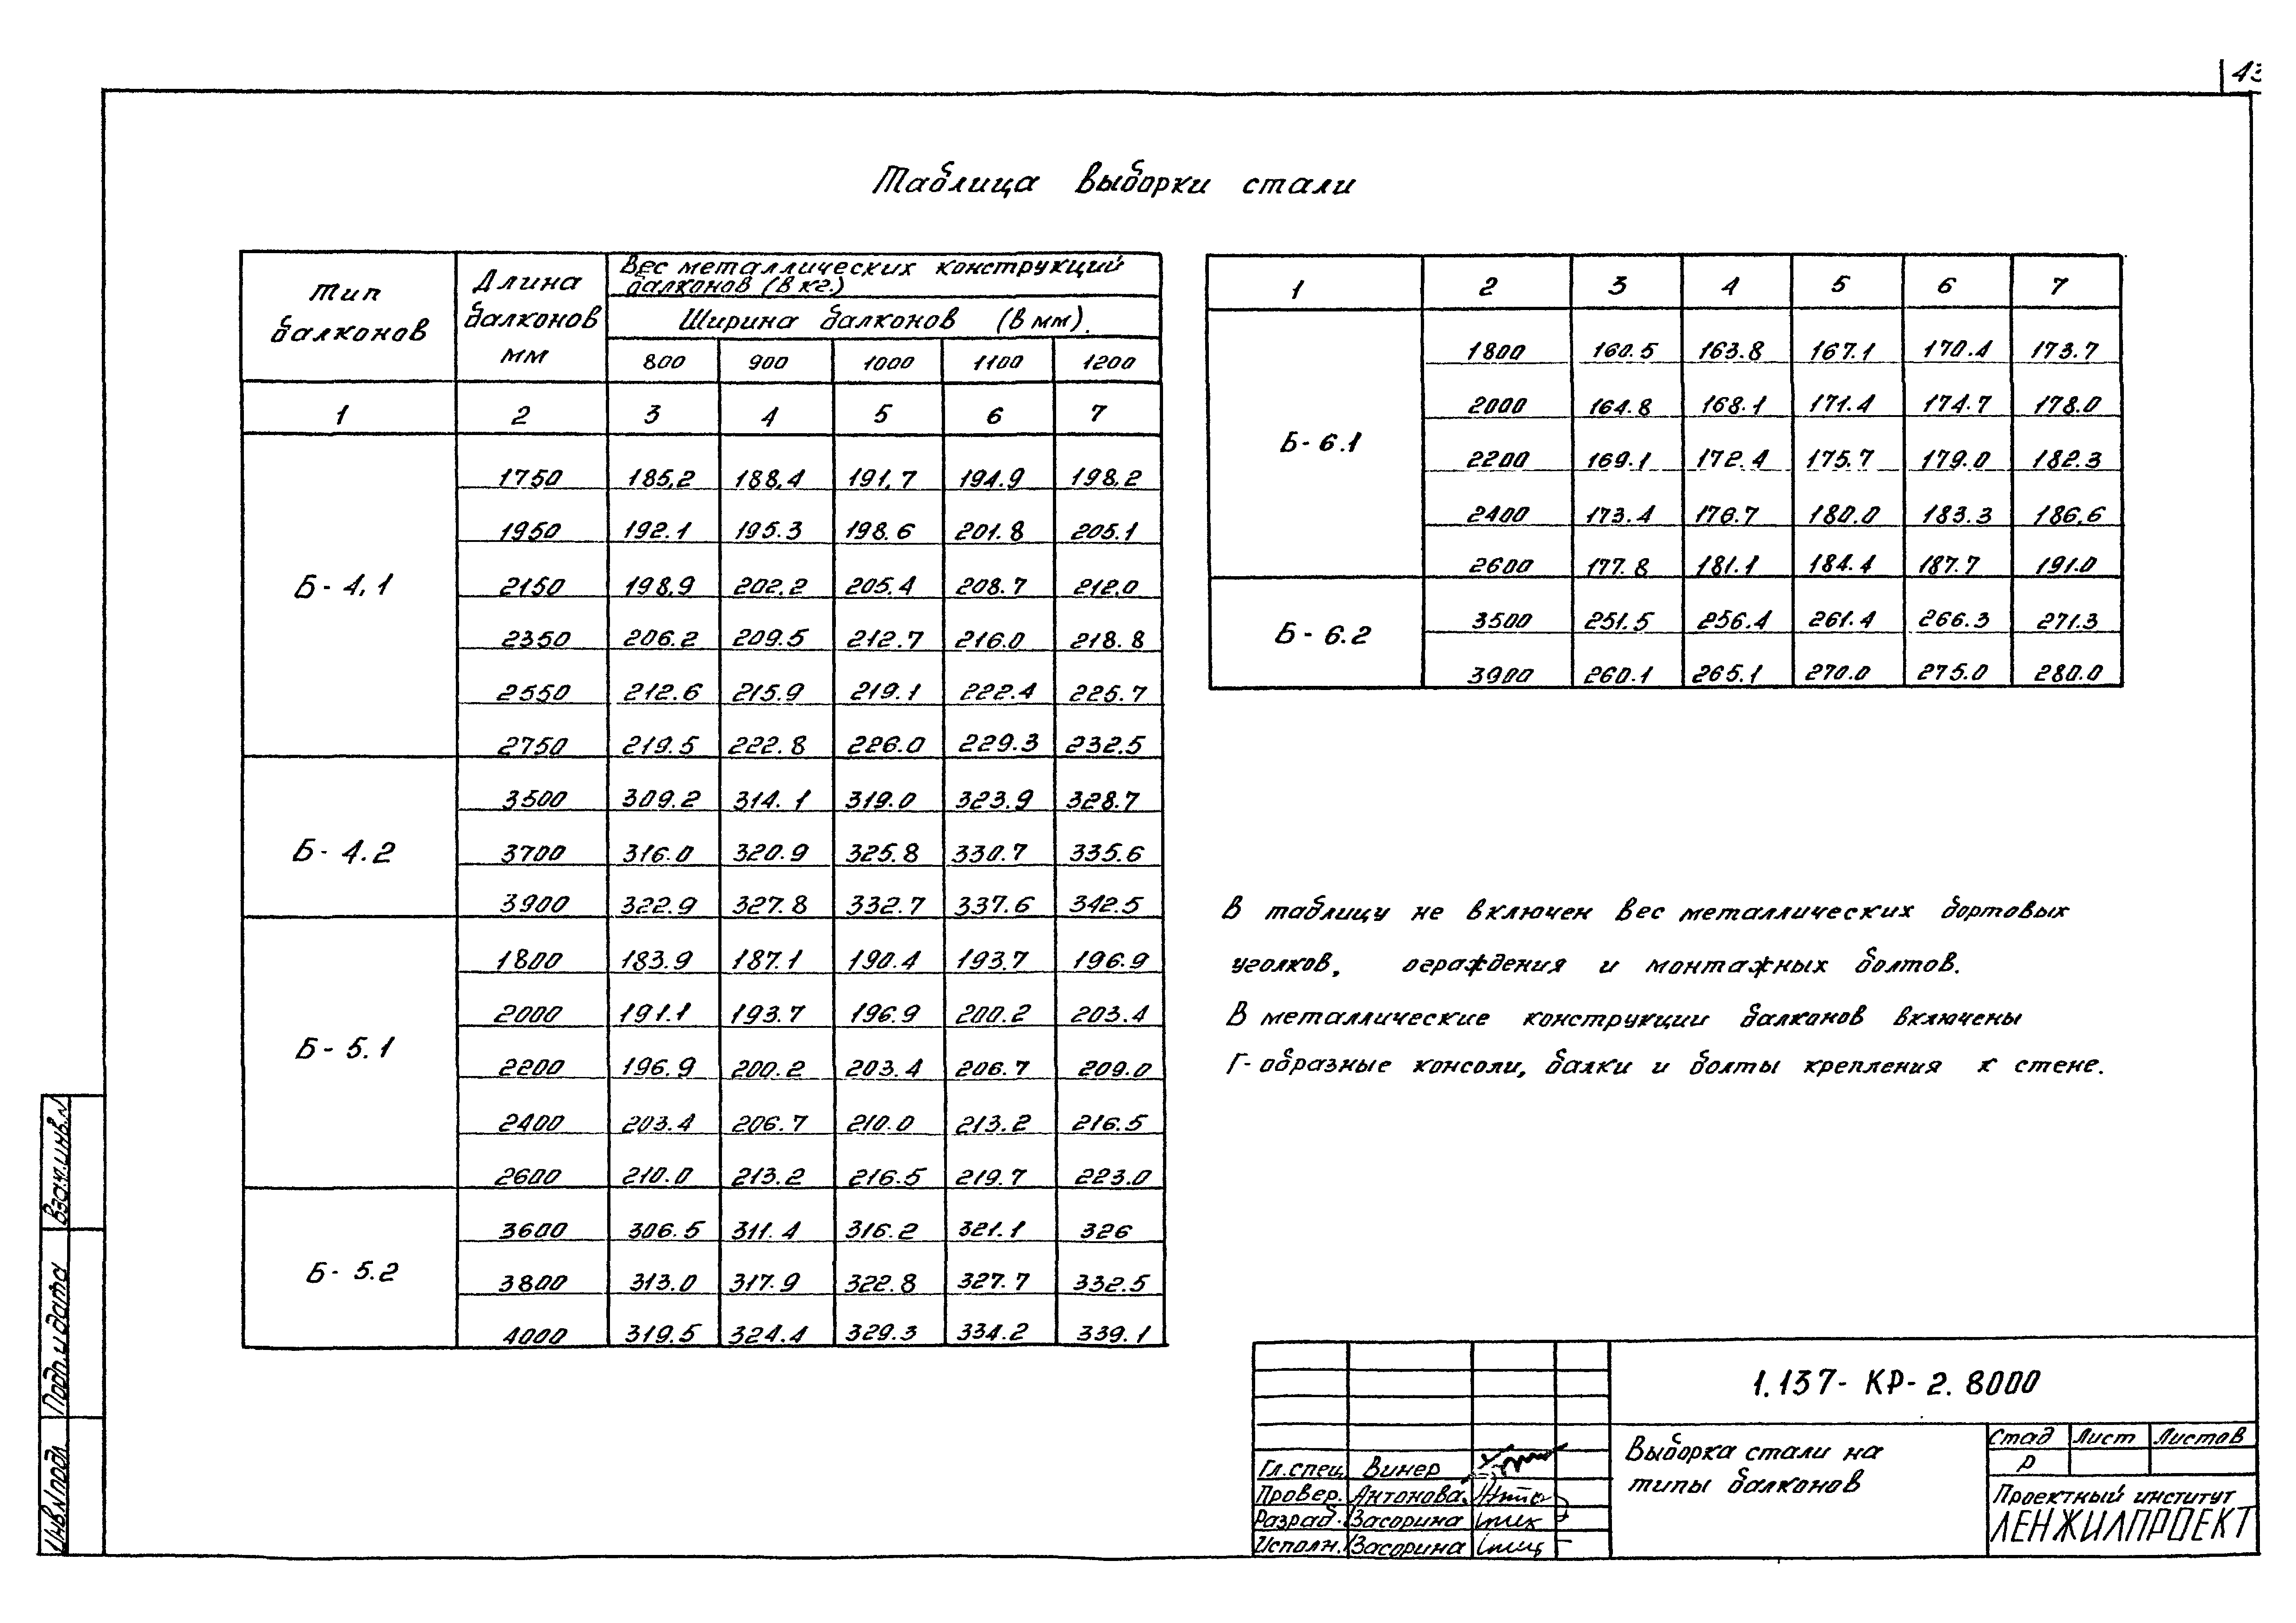 43
Таблица выборки стали
Тип балконов
Длина балконов мм
Вес металлических конструкций балконов (в кг.)
Ширина балконов (в мм).
800 900 1000 1100 1200
1 2 3 4 5 6 7
Б-4,1
1750 185,2 188,4 191,7 194.9 198,2
1950 192.1 195.3 198.6 201.8 205.1
2150 198,9 202,2 205.4 208.7 212,0
2350 206.2 209.5 212.7 216.0 218.8
2550 212.6 215.9 219.1 222.4 225.7
2750 219.5 222.8 226.0 229.3 232.5
Б-4.2
3500 309.2 314.1 319.0 323.9 328.7
3700 316.0 320.9 325.8 330.7 335.6
3900 322.9 327.8 332.7 337.6 342.5
Б-5.1
1800 183.9 187.1 190.4 193.7 196.9
2000 191.1 193.7 196.9 200.2 203.4
2200 196.9 200.2 203.4 206.7 209.0
2400 203.4 206.7 210.0 213.2 216.5
2600 210.0 213.2 216.5 219.7 223.0
Б-5.2
3600 306.5 311.4 316.2 321.1 326
3800 313.0 317.9 322.8 327.7 332.5
4000 319.5 324.4 329.3 334.2 339.1
1 2 3 4 5 6 7
Б-6.1
1800 160.5 163.8 167.1 170.4 173.7
2000 164.8 168.1 171.4 174.7 178.0
2200 169.1 172.4 175.7 179.0 182.3
2400 173.4 176.7 180.0 183.3 186,6
2600 177.8 181.1 184.4 187.7 191.0
Б-6.2
3500 251.5 256.4 261.4 266.3 271.3
3900 260.1 265.1 270.0 275.0 280.0
В таблицу не включен вес металлических бортовых
уголков, ограждения и монтажных болтов.
В металлические конструкции балконов включены
Г-образные консоли, балки и болты крепления к стене.
1.137-КР-2.8000
Выборка стали на
типы балконов
Стад Лист Листов
Р
Проектный институт
ЛЕНЖИЛПРОЕКТ
Гл.спец Винер
Провер. Антонова.
Разраб. Засорина
Исполн. Засорина
Взам.инв.N
Подп.и дата
Инв.N подл.